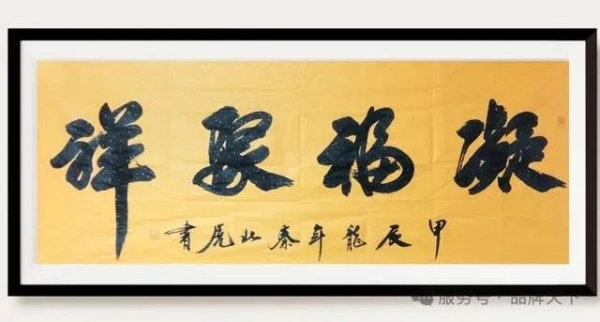 凝福聚祥
甲辰龍年秦北虎書
服务号 · 品牌天下